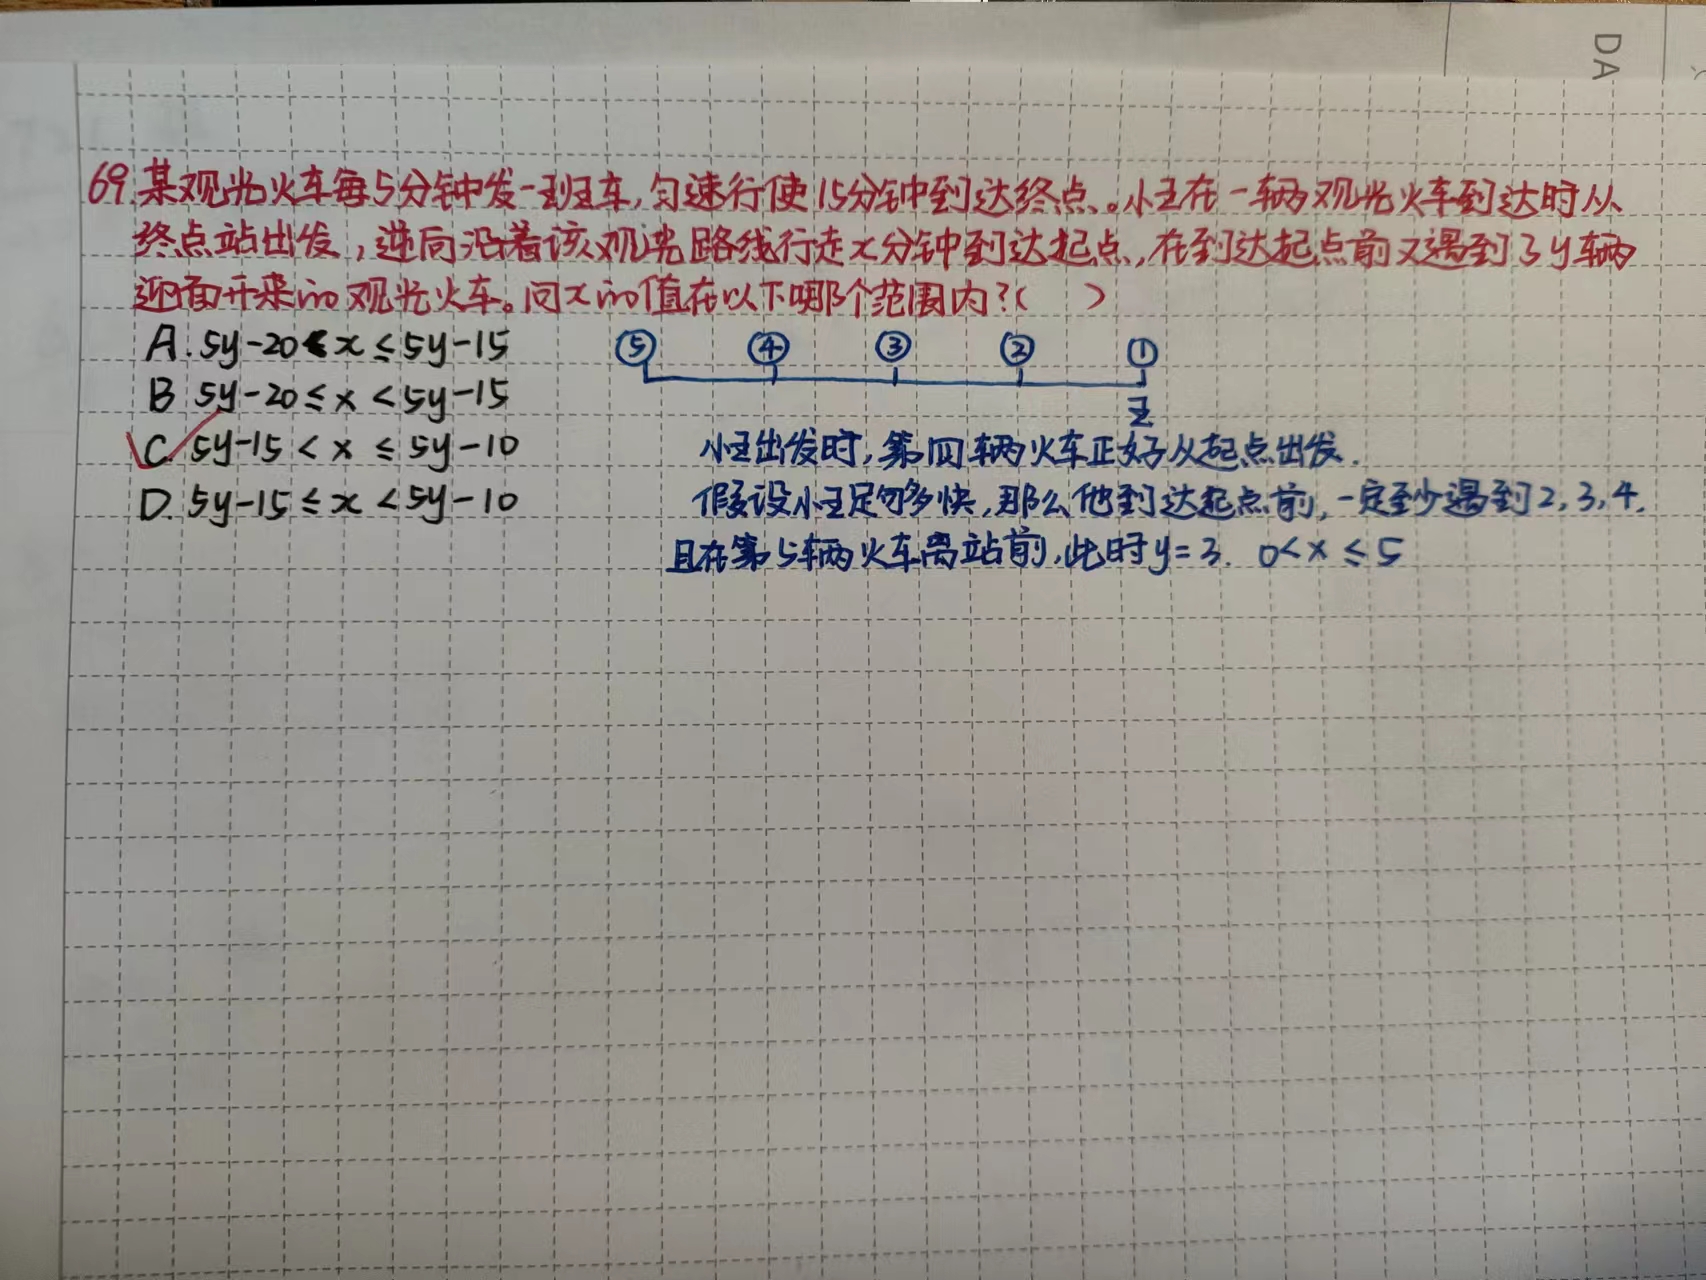 DA
69.某观光火车每5分钟发一班车,匀速行使15分钟到达终点。小王在一辆观光火车到达时从
终点站出发,逆向沿着该观光路线行走x分钟到达起点,在到达起点前又遇到了y辆
迎面开来的观光火车。问x的值在以下哪个范围内?( )
A.5y-20<x≤5y-15
B 5y-20≤x<5y-15
C.5y-15<x≤5y-10
D.5y-15≤x<5y-10
⑤ ④ ③ ② ①
王
小王出发时,第四辆火车正好从起点出发.
假设小王足够多快,那么他到达起点前,一定至少遇到2,3,4.
且在第5辆火车离站前,此时y=3. 0<x≤5